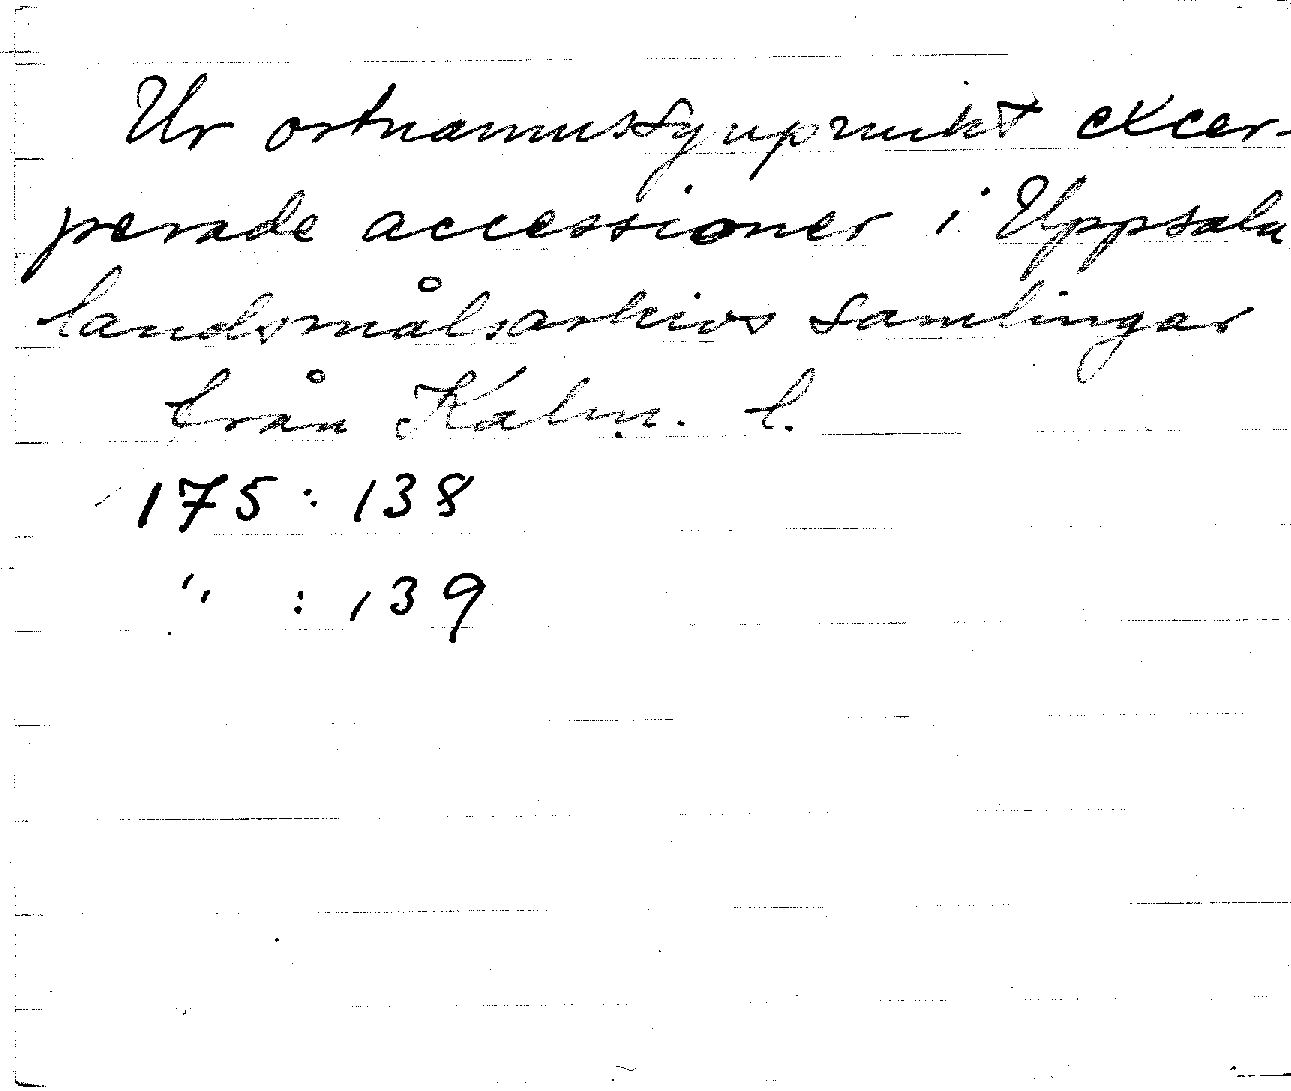 Ur ortnamnssynpunkt excer-
perade accessioner i Uppsala
landsmålsarkivs samlingar
från Kalm. l.
175 : 138
" : 139